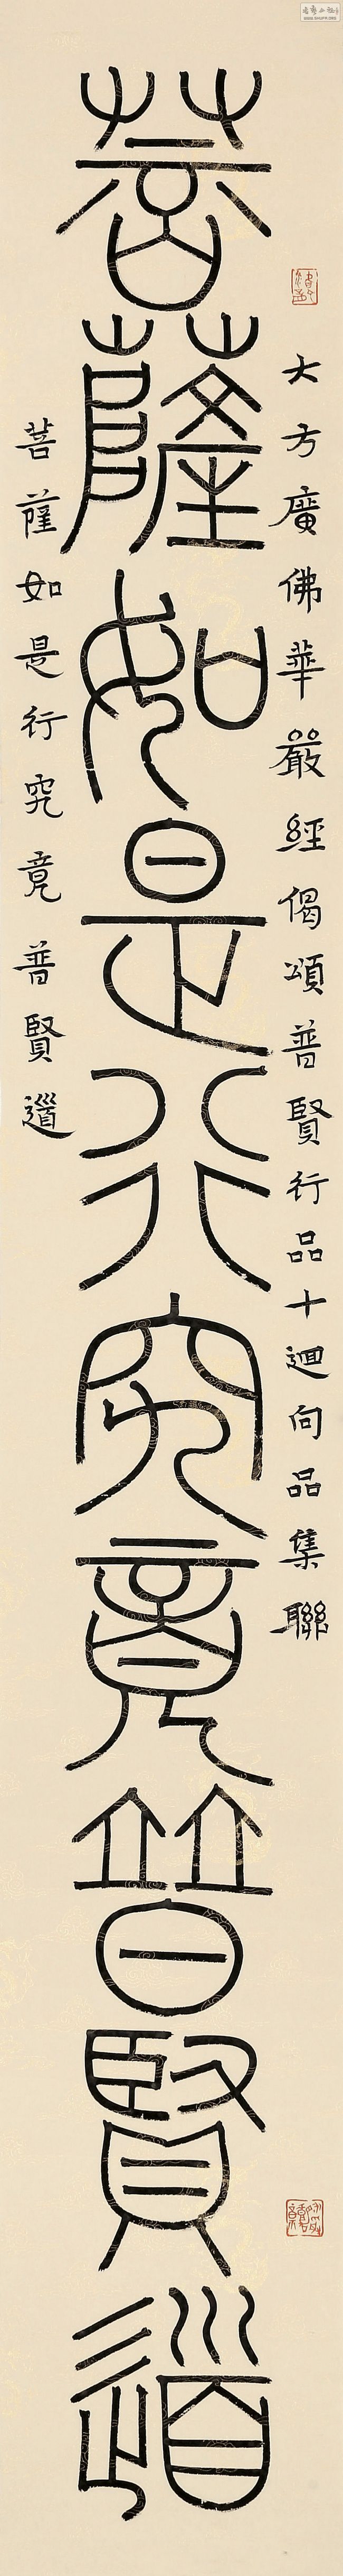 大方廣佛華嚴經偈頌普賢行品十迴向品集聯
菩薩如是行究竟普賢道
菩薩如是行究竟普賢道